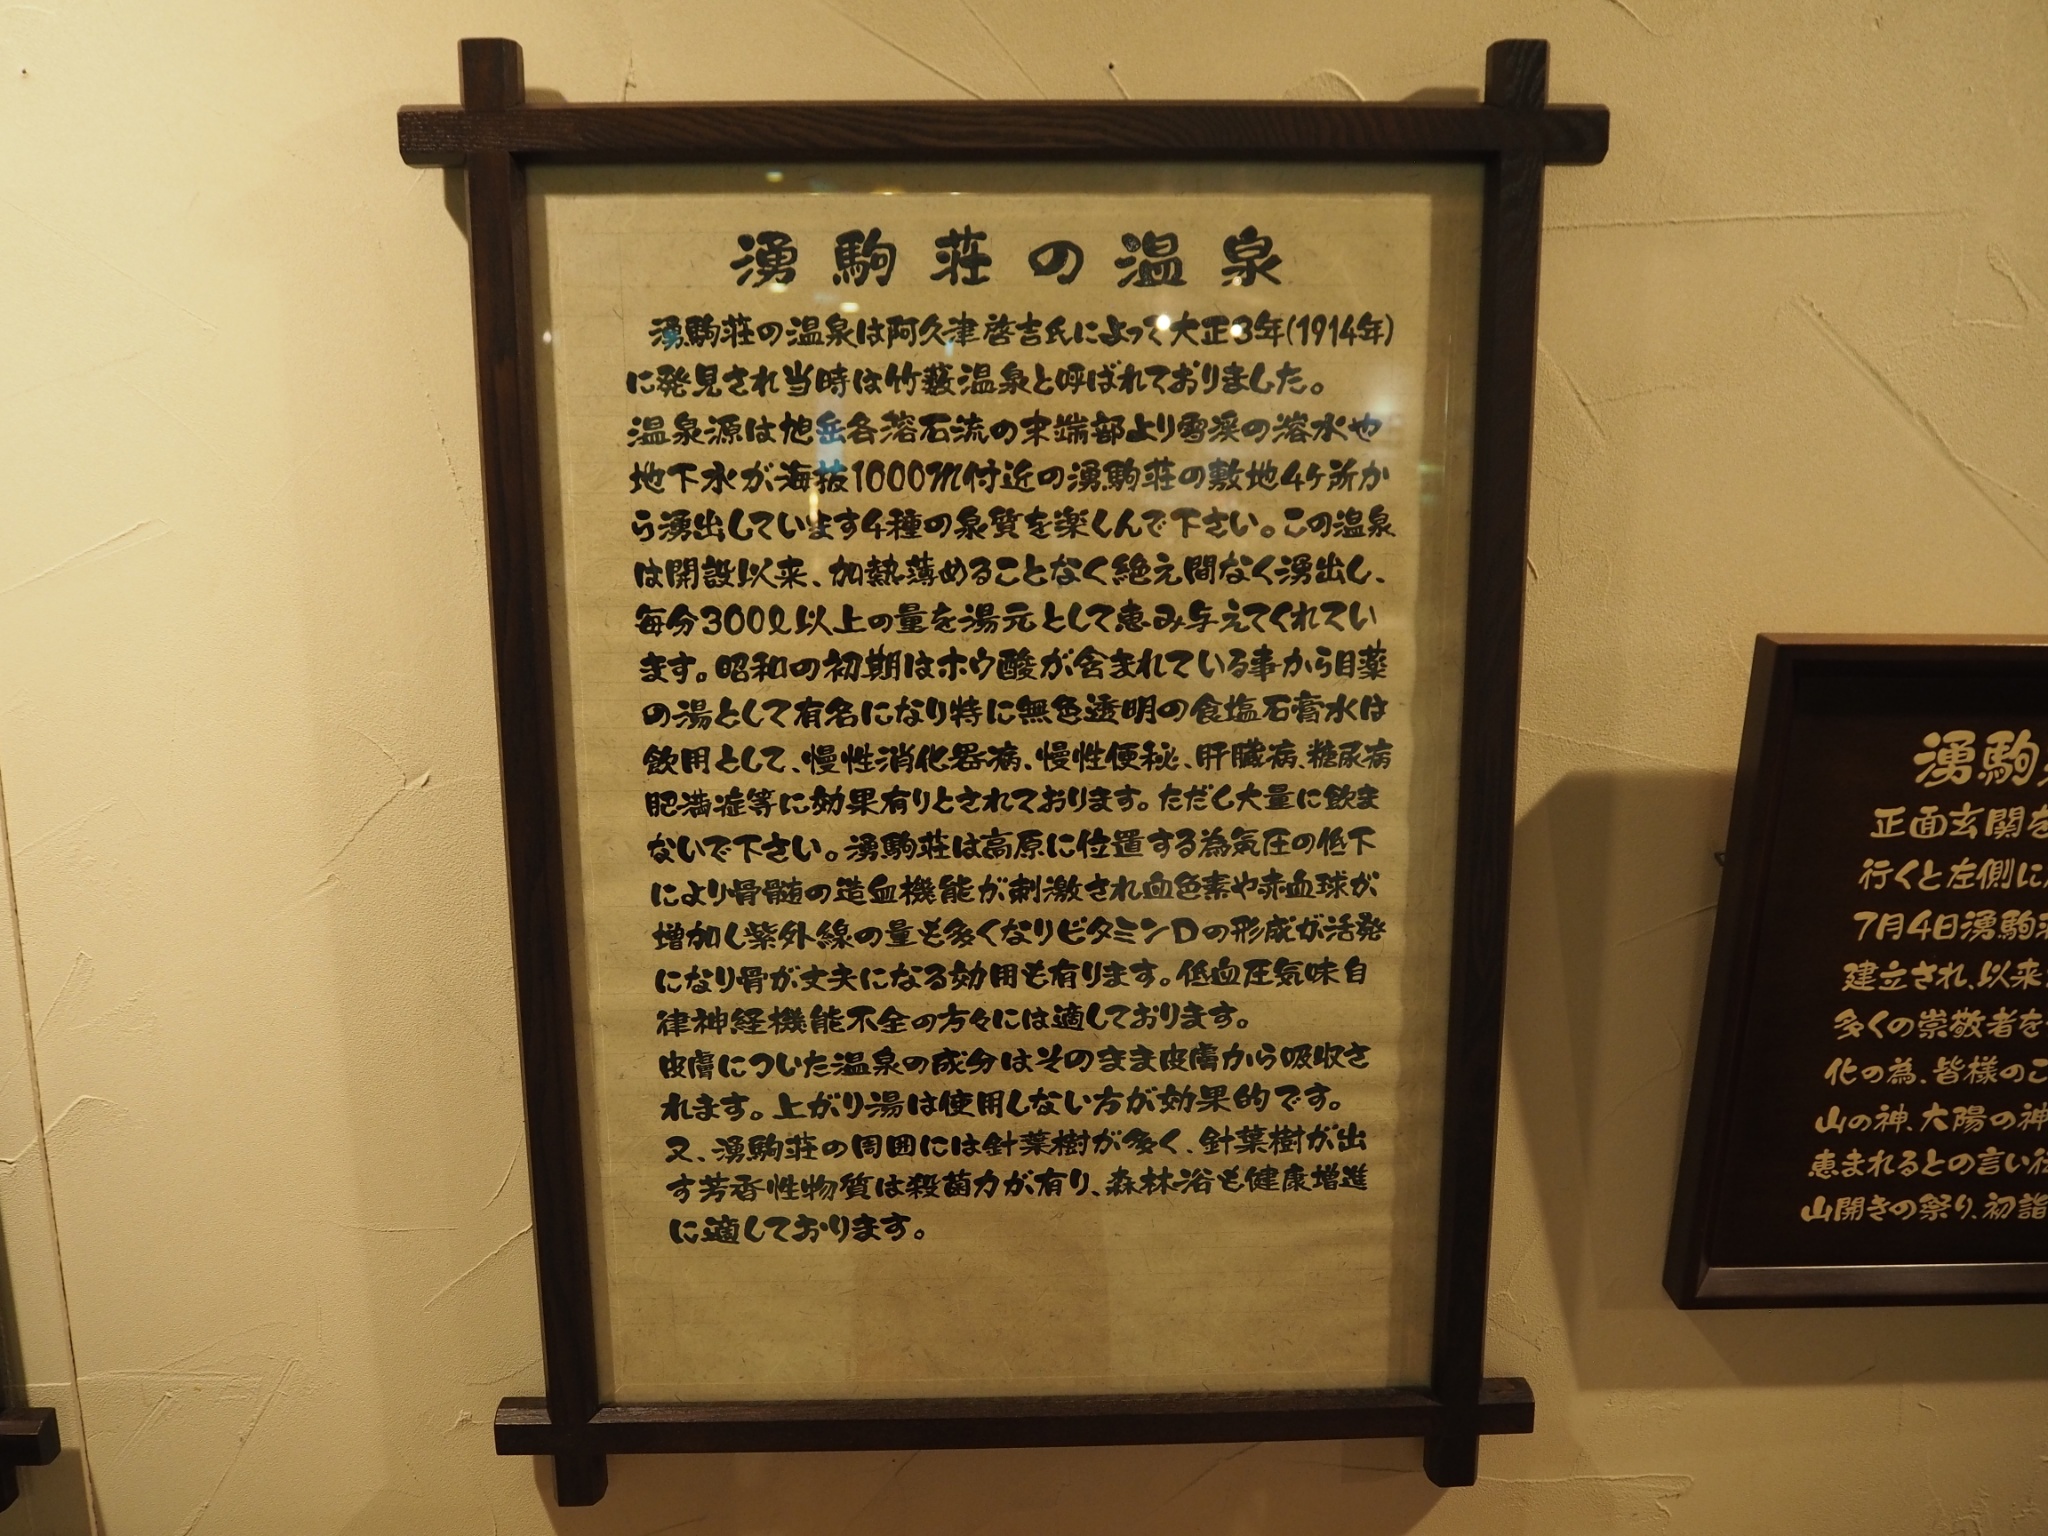 湧駒荘の温泉
湧駒荘の温泉は阿久津啓吉氏によって大正3年(1914年)
に発見され当時は竹藪温泉と呼ばれておりました。
温泉源は旭岳各溶石流の末端部より雪渓の溶水や
地下水が海抜1000m付近の湧駒荘の敷地4ヶ所か
ら湧出しています4種の泉質を楽しんで下さい。この温泉
は開設以来、加熱薄めることなく絶え間なく湧出し、
毎分300ℓ以上の量を湯元として恵み与えてくれてい
ます。昭和の初期はホウ酸が含まれている事から目薬
の湯として有名になり特に無色透明の食塩石膏水は
飲用として、慢性消化器病、慢性便秘、肝臓病、糖尿病
肥満症等に効果有りとされております。ただし大量に飲ま
ないで下さい。湧駒荘は高原に位置する為気圧の低下
により骨髄の造血機能が刺激され血色素や赤血球が
増加し紫外線の量も多くなりビタミンDの形成が活発
になり骨が丈夫になる効用も有ります。低血圧気味自
律神経機能不全の方々には適しております。
皮膚についた温泉の成分はそのまま皮膚から吸収さ
れます。上がり湯は使用しない方が効果的です。
又、湧駒荘の周囲には針葉樹が多く、針葉樹が出
す芳香性物質は殺菌力が有り、森林浴も健康増進
に適しております。
湧駒
正面玄関を
行くと左側に
7月4日湧駒
建立され、以来
多くの崇敬者を
化の為、皆様のこ
山の神、大陽の神
恵まれるとの言い
山開きの祭り、初詣